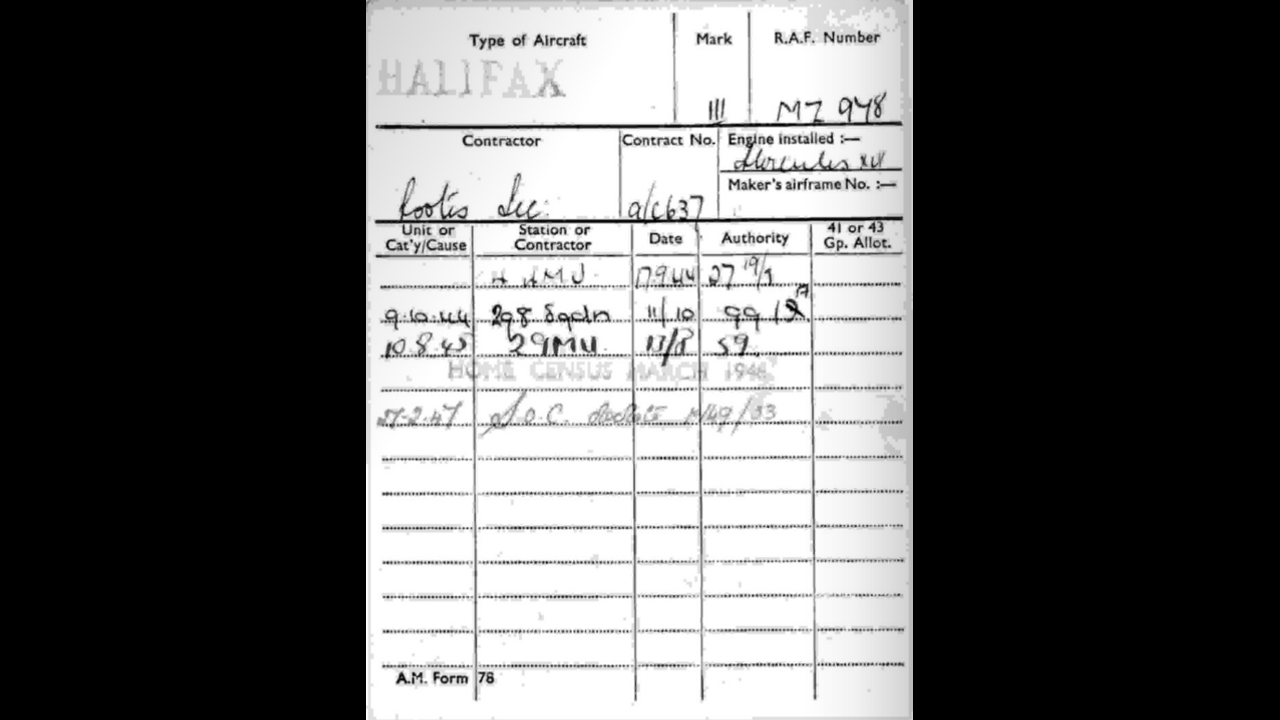 Type of Aircraft Mark R.A.F. Number
HALIFAX III MZ 978
Contractor Contract No. Engine installed :—
Hercules XVI
Maker's airframe No. :—
Rootes Sec. a/c637
Unit or Cat'y/Cause Station or Contractor Date Authority 41 or 43 Gp. Allot.
MU 17.9.44 27 19/9
9.10.44 298 Sqdn 11/10 99
10.8.45 29MU 13/8 59
HOME CENSUS MARCH 1946
27-2-47 S.O.C. /49/53
A.M. Form 78